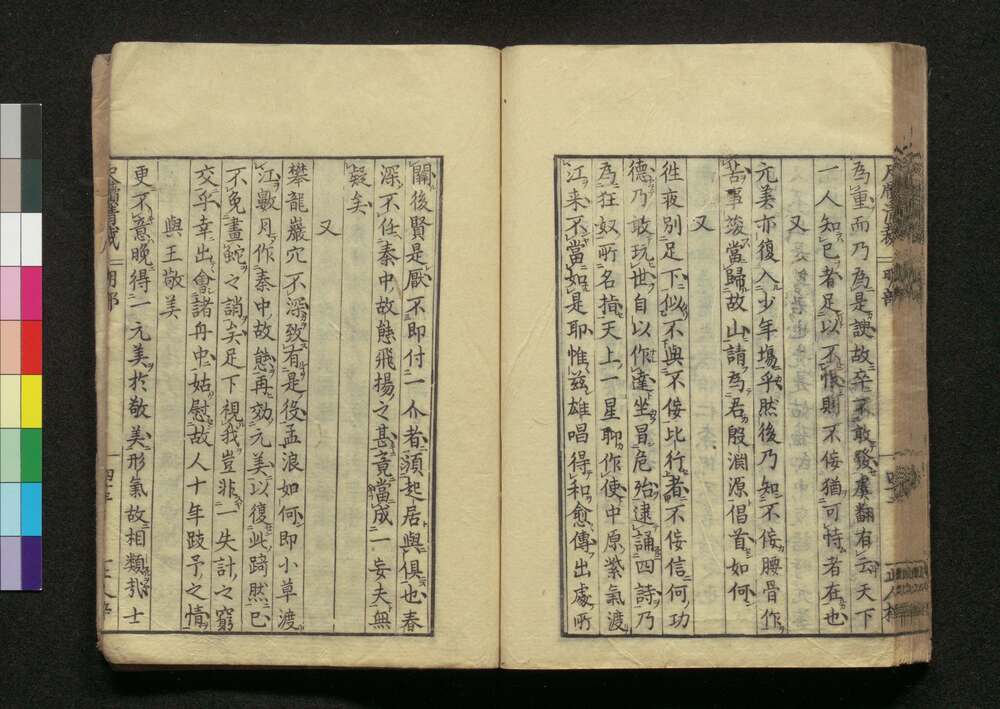 為重而乃為是諛故卒不敢發虞翻有云天下
一人知己者足以不恨則不佞猶可恃者在也
又
元美亦復入少年場乎然後乃知不佞腰骨作
苦事竣當歸故山請為君殷淵源倡首如何
又
徃夜別足下似不與不佞比行者不佞信何功
德乃敢玩世自以作達坐冒危殆逮誦四詩乃
為狂奴所名指天上一星聊作使中原紫氣渡
江来不當如是耶惟茲雄唱得和愈傳出處所
關後賢是厭不即付一介者須起居與俱也春
深不任秦中故態飛揚之甚竟當成一妄夫無
疑矣
又
攀龍巖穴不深致有是役孟浪如何即小草渡
江數月作秦中故態再効元美以復此蹐然已
不免畫蛇之誚矣足下視我豈非一失計之窮
交乎幸出會諸舟中姑慰故人十年跂予之情
與王敬美
更不意晩得一元美於敬美形氣故相類哉士